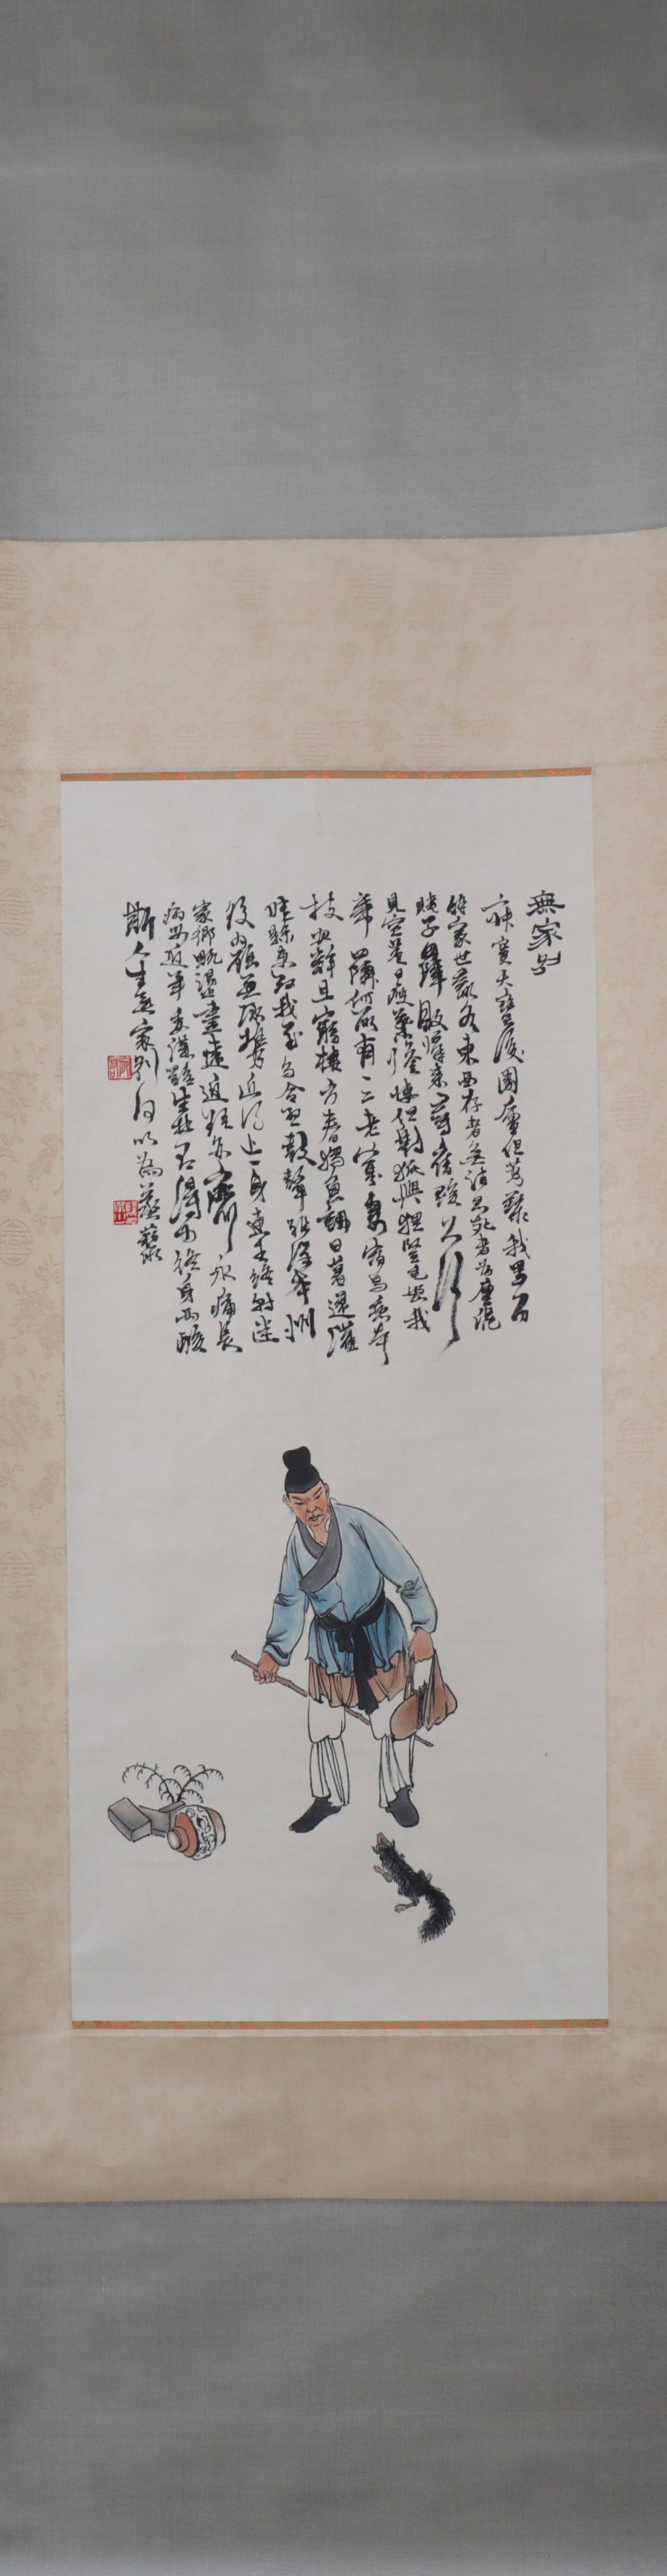 無家別
寂寞天寶後園廬但蒿藜我里百
餘家世亂各東西存者無消息死者為塵泥
賤子因陣敗歸來尋舊蹊久行
見空巷日瘦氣慘悽但對狐與狸豎毛怒我
啼四鄰何所有一二老寡妻宿鳥戀本
枝安辭且窮棲方春獨荷鋤日暮還灌
畦縣吏知我至召令習鼓鞞雖從本州
役內顧無所攜近行止一身遠去終轉迷
家鄉既盪盡遠近理亦齊永痛長
病母五年委溝谿生我不得力終身兩酸
嘶人生無家別何以為蒸藜